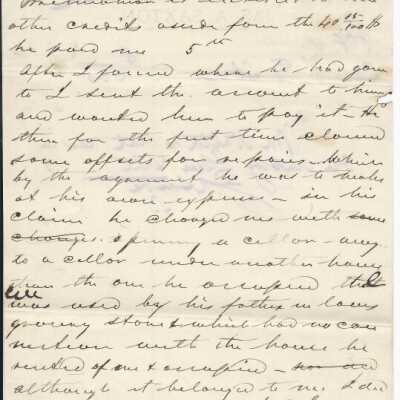 other credits aside form the 40 15/100 $
he paid me 5th
After I found where he had gone
to I sent the account to him
and wanted him to pay it - He
then for the first time claimed
some offsets for repairs - Which
by the agreement he was to make
at his own expense - in his
claim he charged me with some
changes. opening a cellar - way
to a cellar under another house
than the one he occupied that
was used by his father in laws
grocery store & which had no con
nection with the house he
rented of me & occupied -
although it belonged to me I did